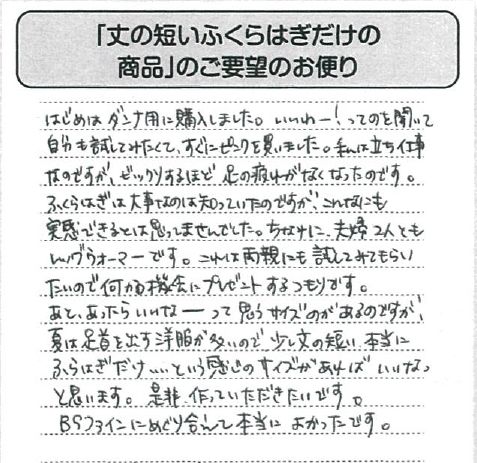 「丈の短いふくらはぎだけの
商品」のご要望のお便り
はじめはダンナ用に購入しました。いいわー！ってのを聞いて
自分も試してみたくて、すぐにピンクを買いました。私は立ち仕事
なのですが、ビックリするほど足の疲れがなくなったのです。
ふくらはぎは大事なのは知っていたのですが、こんなにも
実感できるとは思ってませんでした。ちなみに、夫婦2人とも
レッグウォーマーです。これは両親にも試してみてもらい
たいので何かの機会にプレゼントするつもりです。
あと、あったらいいなーって思うサイズのがあるのですが、
夏は足首を出す洋服が多いので少し丈の短い、本当に
ふくらはぎだけ…という感じのサイズがあればいいなっ
と思います。是非、作っていただきたいです。
BSファインにめぐり会えて本当によかったです。